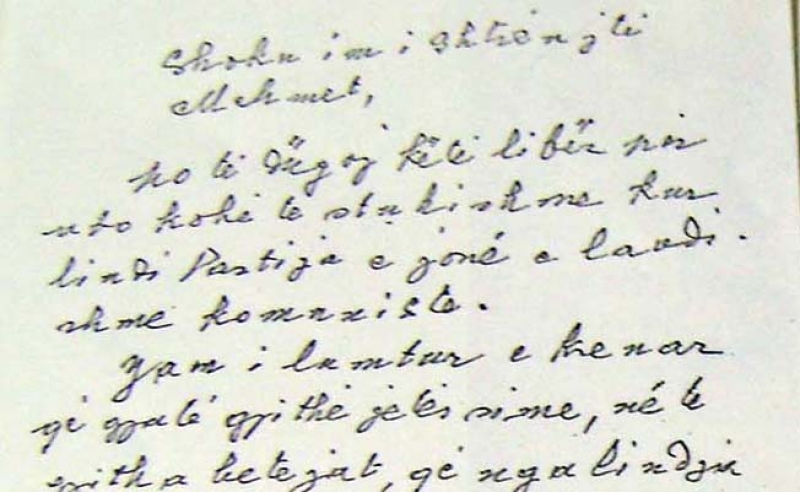 Shoku im i shtrënjti
Mehmet,
po të dërgoj këtë libër për
ato kohë të stuhishme kur
lindi Partija e jonë e lavdi-
shme komuniste.
Jam i lumtur e krenar
që gjatë gjithë jetës sime, në të
gjitha betejat, që nga lindja